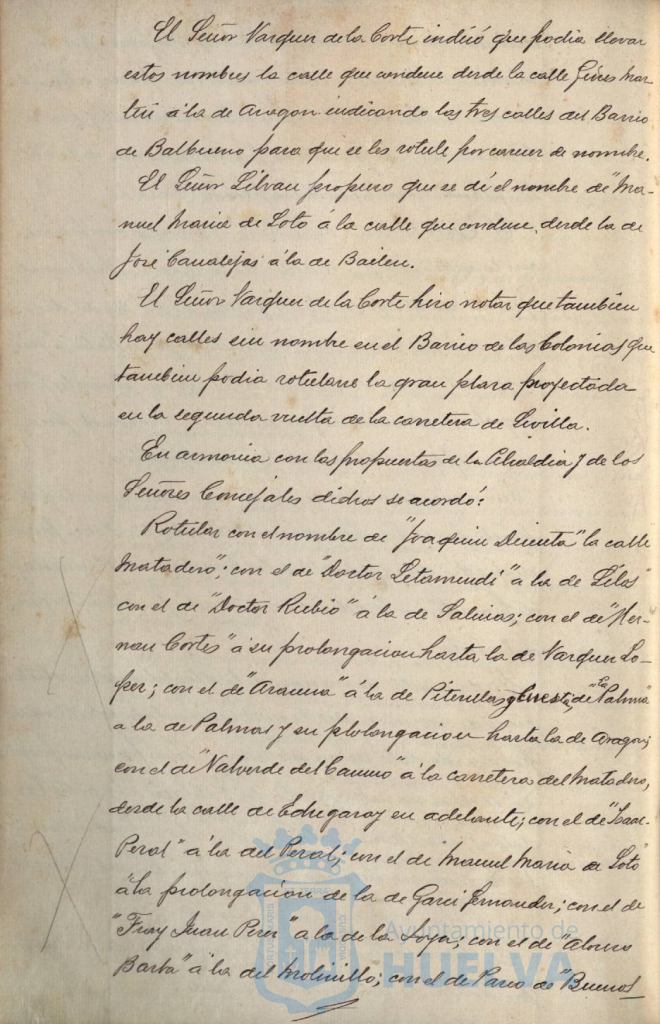 El Señor Vazquez de la Corte indicó que podia llevar
estos nombres la calle que conduce desde la calle Ginés Mar-
tin á la de Aragon indicando las tres calles del Barrio
de Balbueno para que se les rotule por carecer de nombre.
El Señor Silvan propuso que se dé el nombre de "Ma-
nuel Maria de Soto á la calle que conduce, desde la de
José Canalejas á la de Bailen.
El Señor Vazquez de la Corte hizo notar que tambien
hay calles sin nombre en el Barrio de las Colonias, que
tambien podia rotularse la gran plaza proyectada
en la segunda vuelta de la carretera de Sevilla.
En armonia con las propuestas de la Alcaldia y de los
Señores Concejales dichos se acordó:
Rotular con el nombre de "Joaquin Dicenta" la calle
Matadero"; con el de "Doctor Letamendi" a la de Silos"
con el de "Doctor Rubio" á la de Salinas; con el de "Her-
nan Cortes" á su prolongacion hasta la de Vazquez Lo-
pez; con el de "Aracena" á la de Piterillas y Cuesta; de "La Palma"
a la de Palmas y su prolongacion hasta la de Aragon;
con el de "Valverde del Camino" á la carretera del Matadero,
desde la calle de Echegaray en adelante; con el de "Isaac
Peral" á la del Peral; con el de Manuel Maria de Soto"
á la prolongacion de la de Garci Fernandez; con el de
"Fray Juan Perez" a la de la Soya; con el de "Alonso
Barba" á la del Molinillo; con el de Paseo de "Buenos
Ayuntamiento de
HUELVA